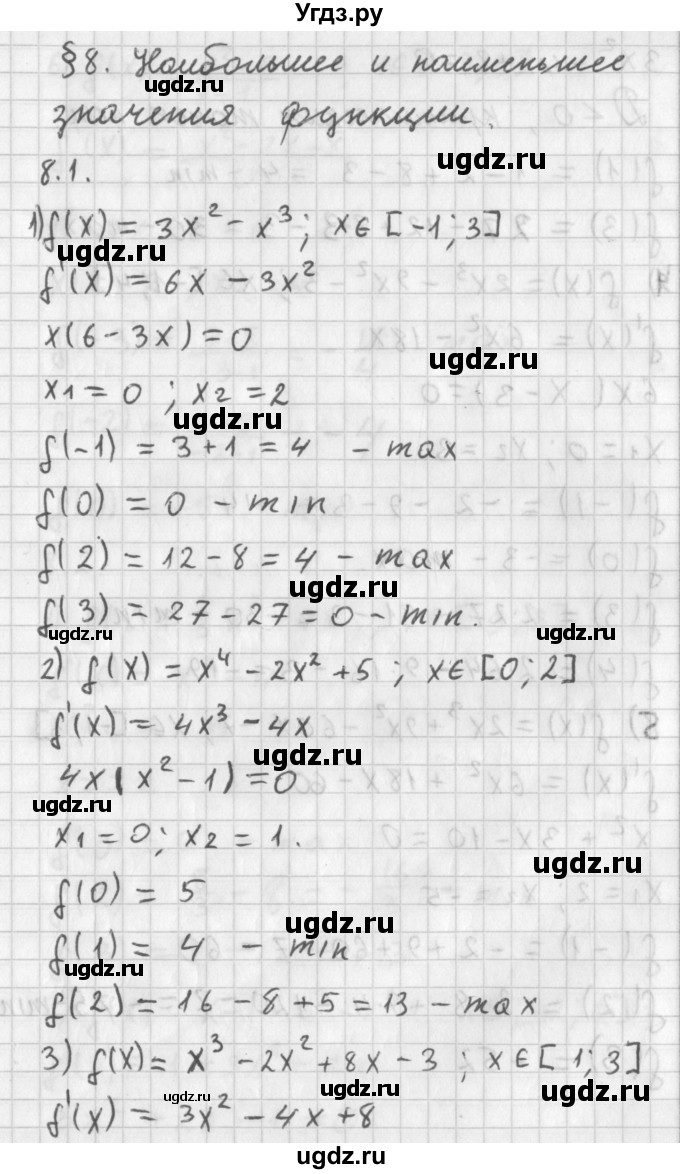 Угдз.ру
§8. Наибольшее и наименьшее
ugdz.ru
значения функции.
ugdz.ru
8.1.
1) f(x) = 3x² - x³; x∈[-1;3]
ugdz.ru
f'(x) = 6x - 3x²
x(6-3x)=0
ugdz.ru
x₁=0; x₂=2
ugdz.ru
f(-1) = 3+1 = 4 - max
f(0) = 0 - min
f(2) = 12-8=4 - max
ugdz.ru
f(3) = 27-27=0 - min.
ugdz.ru ugdz.ru
2) f(x) = x⁴ - 2x² +5; x∈[0;2]
f'(x) = 4x³ - 4x
ugdz.ru
4x(x²-1)=0
ugdz.ru
x₁=0; x₂=1.
ugdz.ru
f(0) = 5
ugdz.ru
f(1) = 4 - min
ugdz.ru
f(2) = 16 - 8 + 5 = 13 - max
3) f(x) = x³ - 2x² + 8x - 3; x∈[1;3]
ugdz.ru ugdz.ru ugdz.ru
f'(x) = 3x² - 4x + 8
ugdz.ru